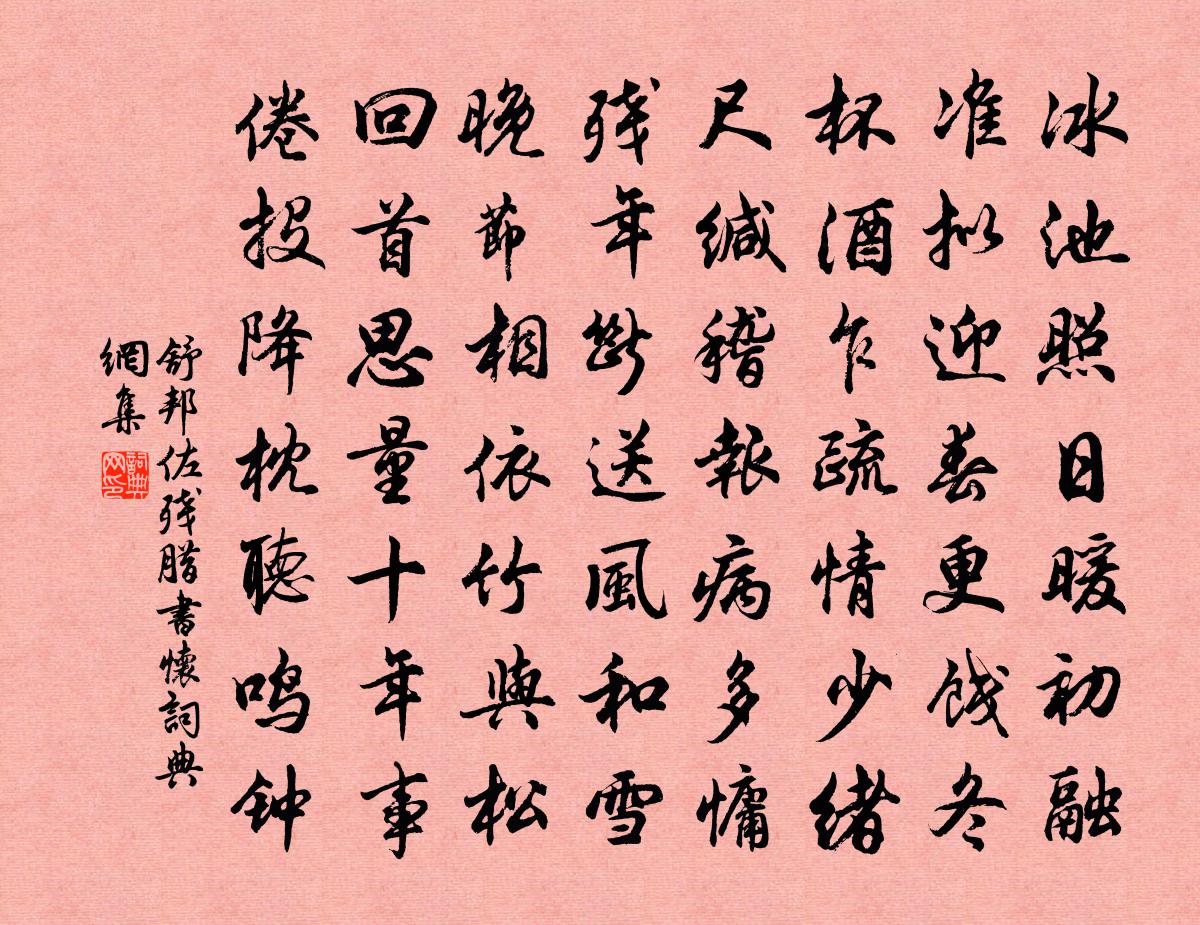 冰池照日暖初融
准拟迎春更饯冬
杯酒乍疏情少绪
尺缄稽報病多慵
残年断送風和雪
晚節相依竹與松
回首思量十年事
倦投降枕聽鸣钟
舒邦佐残腊書懷詞典
網集
詞典
网印